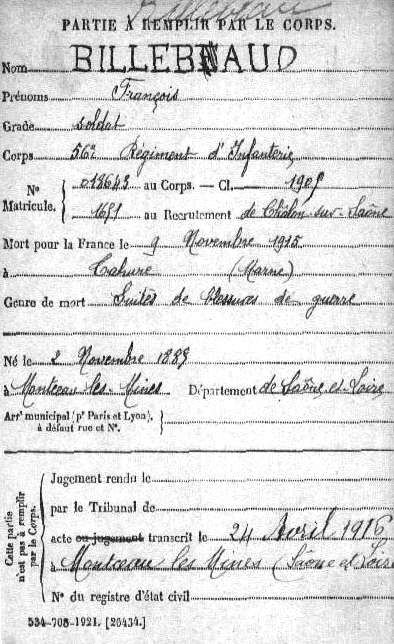 PARTIE À REMPLIR PAR LE CORPS.
Nom BILLEBNAUD
Prénoms François
Grade soldat
Corps 56e Régiment d'Infanterie
N° Matricule. 018643 au Corps. — Cl. 1909
1681 au Recrutement de Châlon-sur-Saône
Mort pour la France le 9 Novembre 1915
à Tahure (Marne)
Genre de mort Suites de blessures de guerre
Né le 2 Novembre 1889
à Montceau les Mines Département de Saône-et-Loire
Arrt municipal (pr Paris et Lyon),
à défaut rue et N°.
Cette partie n'est pas à remplir par le Corps.
Jugement rendu le
par le Tribunal de
acte ou jugement transcrit le 24 Avril 1916
à Montceau les Mines (Saône et Loire
N° du registre d'état civil
534-708-1921. [26434.]